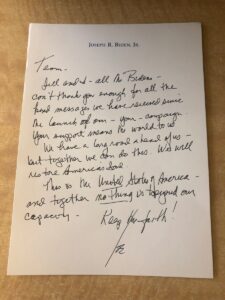 JOSEPH R. BIDEN, JR.
Team -
Jill and I - all the Bidens -
can't thank you enough for all the
kind messages we have received since
the launch of our - your - campaign.
Your support means the world to us.
We have a long road ahead of us -
but together we can do this. We will
restore America's Soul
This is the United States of America -
and together nothing is beyond our
capacity -
Keep the faith!
Joe